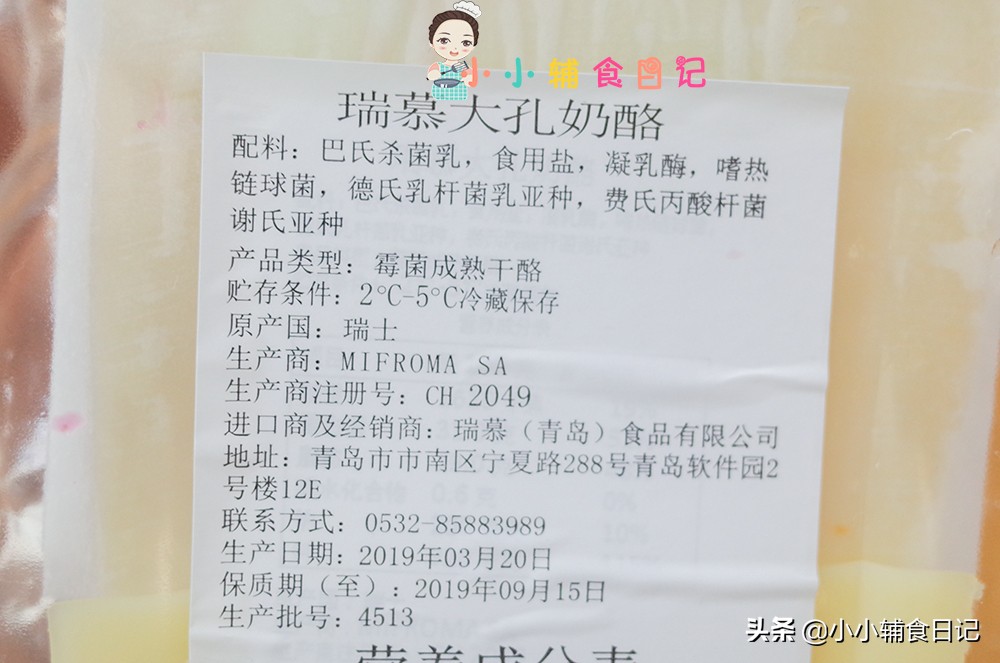 小小辅食日记
瑞慕大孔奶酪
配料：巴氏杀菌乳，食用盐，凝乳酶，嗜热
链球菌，德氏乳杆菌乳亚种，费氏丙酸杆菌
谢氏亚种
产品类型：霉菌成熟干酪
贮存条件：2°C-5°C冷藏保存
原产国：瑞士
生产商：MIFROMA SA
生产商注册号：CH 2049
进口商及经销商：瑞慕（青岛）食品有限公司
地址：青岛市市南区宁夏路288号青岛软件园2
号楼12E
联系方式：0532-85883989
生产日期：2019年03月20日
保质期（至）：2019年09月15日
生产批号：4513
营养成分表
头条 @小小辅食日记